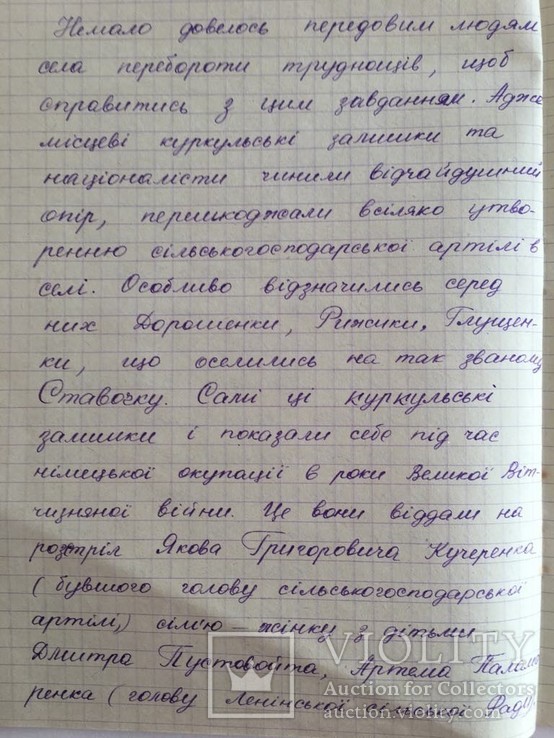 Немало довелось передовим людям
села перебороти труднощів, щоб
справитись з цим завданням. Адже
місцеві куркульські залишки та
націоналісти чинили відчайдушний
опір, перешкоджали всіляко утво-
ренню сільськогосподарської артілі в
селі. Особливо відзначились серед
них Дорошенки, Рижики, Глущен-
ки, що оселились на так званому
Ставочку. Самі ці куркульські
залишки і показали себе під час
німецької окупації в роки Великої Віт-
чизняної війни. Це вони віддали на
розстріл Якова Григоровича Кучеренка
(бувшого голову сільськогосподарської
артілі,) сім'ю – жінку з дітьми
Дмитра Пустовойта, Артема Паламо
ренка (голову Ленінської сільської Ради).
VIOLITY
Auction for Collectors
auction.violity.com